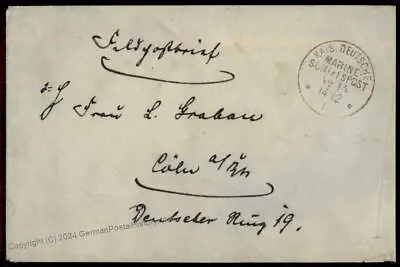 Feldpostbrief
KAIS. DEUTSCHE
MARINE-
SCHIFFSPOST
14 12
Frau L. Grabau
Cöln a/Rh
Deutscher Ring 19.
Copyright (C) 2024 GermanPostalHistory